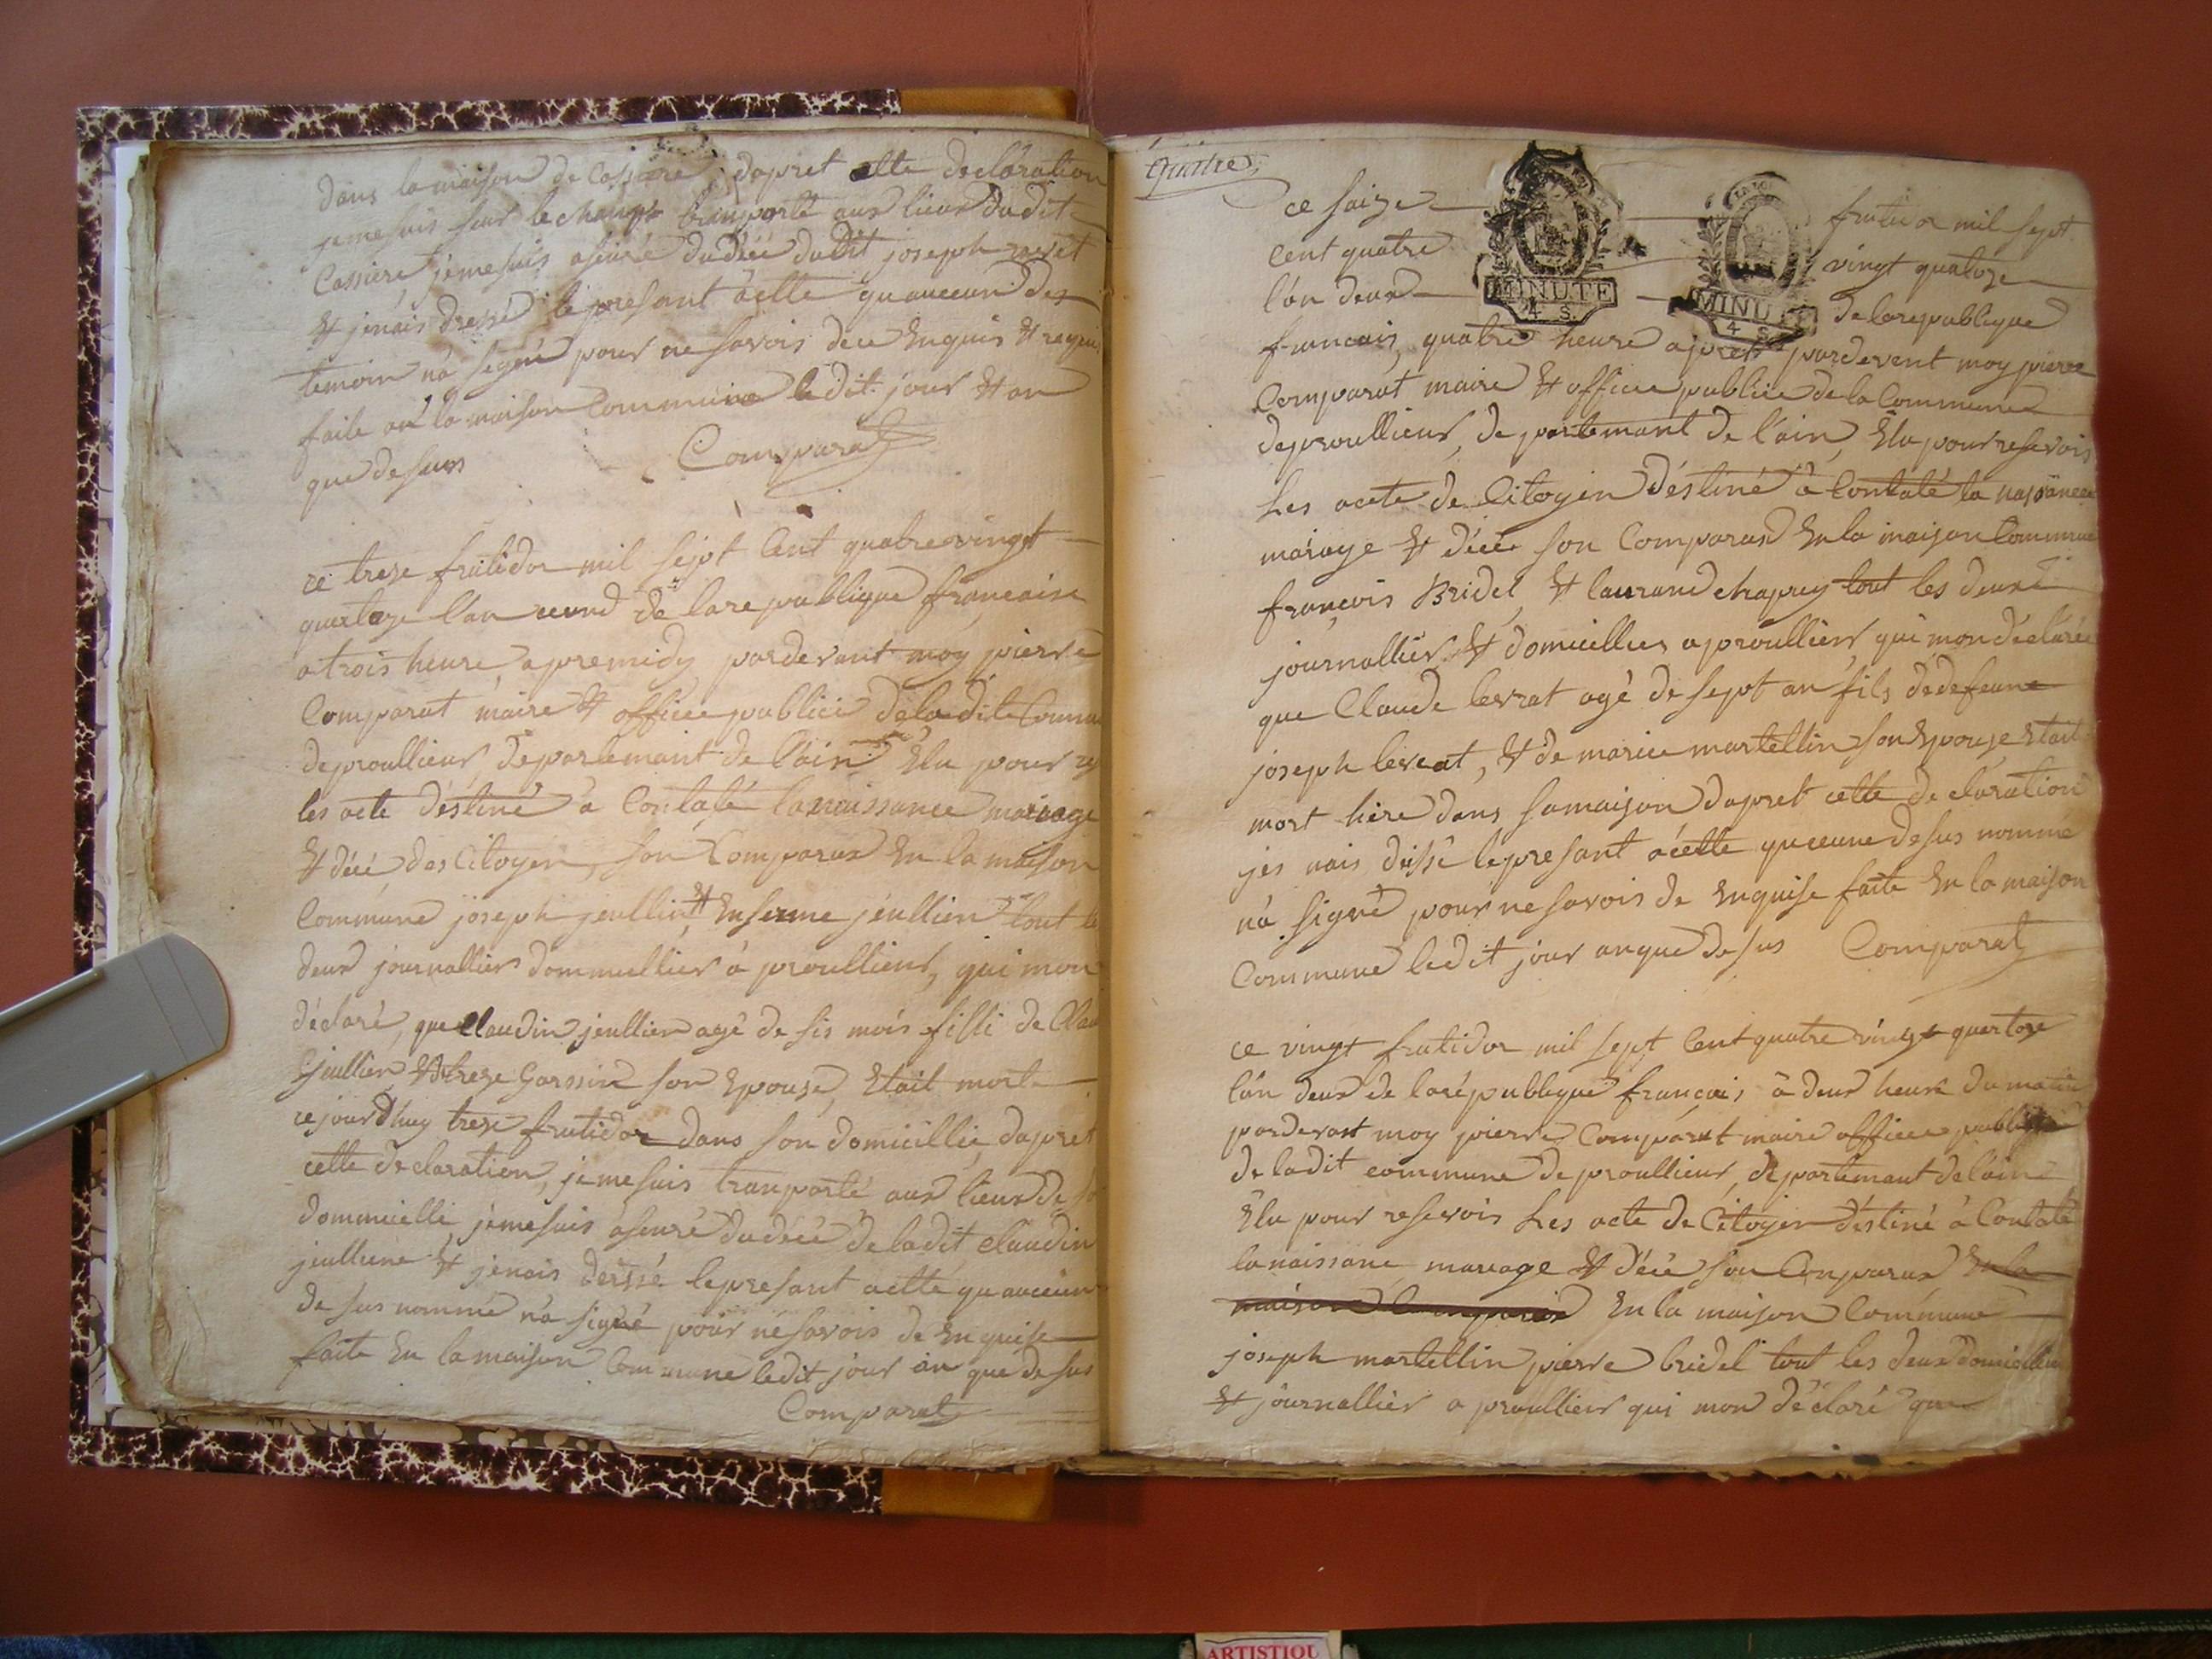 dans la maison de Cassiere, dapret cette declaration
jemesuis sur le champs tranporté aux lieux dudit
Cassiere jemesuis aseuré dudéié dudit joseph
& jenais dressé le presant acitte quauceun des
temoin nà signé pour ne savois dece Enquis & requi
faite an la maison Commune ledit jour & an
que desus Comparat
ce treze frutidor mil sept Cent quatre vingt
quatorze l'an ceond de larepublique francaise
a trois heure, apremidy pardevant moy pierre
Comparat maire & officee publiei delaDite Commu
deproullieur, departemant de l'ain Elu pour
les acte déstiné à Contaté lanaissance mariage
& décé des Citoyen, son Comparux En la maison
Commune joseph jeullin, & jeullien tout le
deux journallier dommicllier à proullieur, qui mon
déclaré, que Claudin jeullien agé de sis mois filli de Clau
jeullien & treze Garssin son Epouze, Etait morte
cejourdhuy treze frutidor dans son domicillie, dapret
cette declaration, jemesuis tranporté aux lieux de
dommicelli, jemesuis àseuré dudéié de ladit claudin
jeulliene & jenais dressé lepresant acitte quauceun
de sus nommé nà signé pour nesavois de Enquise
faite En lamaison Commune ledit jour an que desus
Comparat
quatre
ce saize frutidor mil sept
cent quatre vingt quatoze
l'ân deux de larepublique
francais, quatre heure apret pardevent moy pierre
Comparat maire & officee publiee de la Commune
deproullieur, departemant de l'ain, Elu pour resevois
Les acete de Citoyen déstiné à Contaté la naissance
mariage & décé son Comparux En la maison Commune
françois Bridel, & laurand chaprey tout les deux
journallier & domicillier aproullieur qui mon déclaré
que Claude levrat agé de sept an fils dédefeunc
joseph levrat, & de marie martellin son Epouze Etait
mort hiere dans samaison dapret cette declaration
jes nais drissé lepresant acitte queceune desus nommé
nà signé pour ne savois de Enquise faite En la maison
Commune ledit jour anque desus Comparat
ce vingt frutidor mil sept Cent quatre vingt quertoze
l'ân deux de larépublique français à deux heure du matin
pardevant moy pierre Comparat maire officee
de ladit commune de proullieur, départemant delain
Elu pour resevois Les acte de Citoyen déstiné à Contaté
lanaissane mariage & décé son Comparux En la
maison En la maison Commune
joseph martellin pierre bridel tout les deux domicillier
& journallier a proullieur qui mon déclaré que
MINUTE
4 S.
MINUTE
4 S
ARTISTIQU